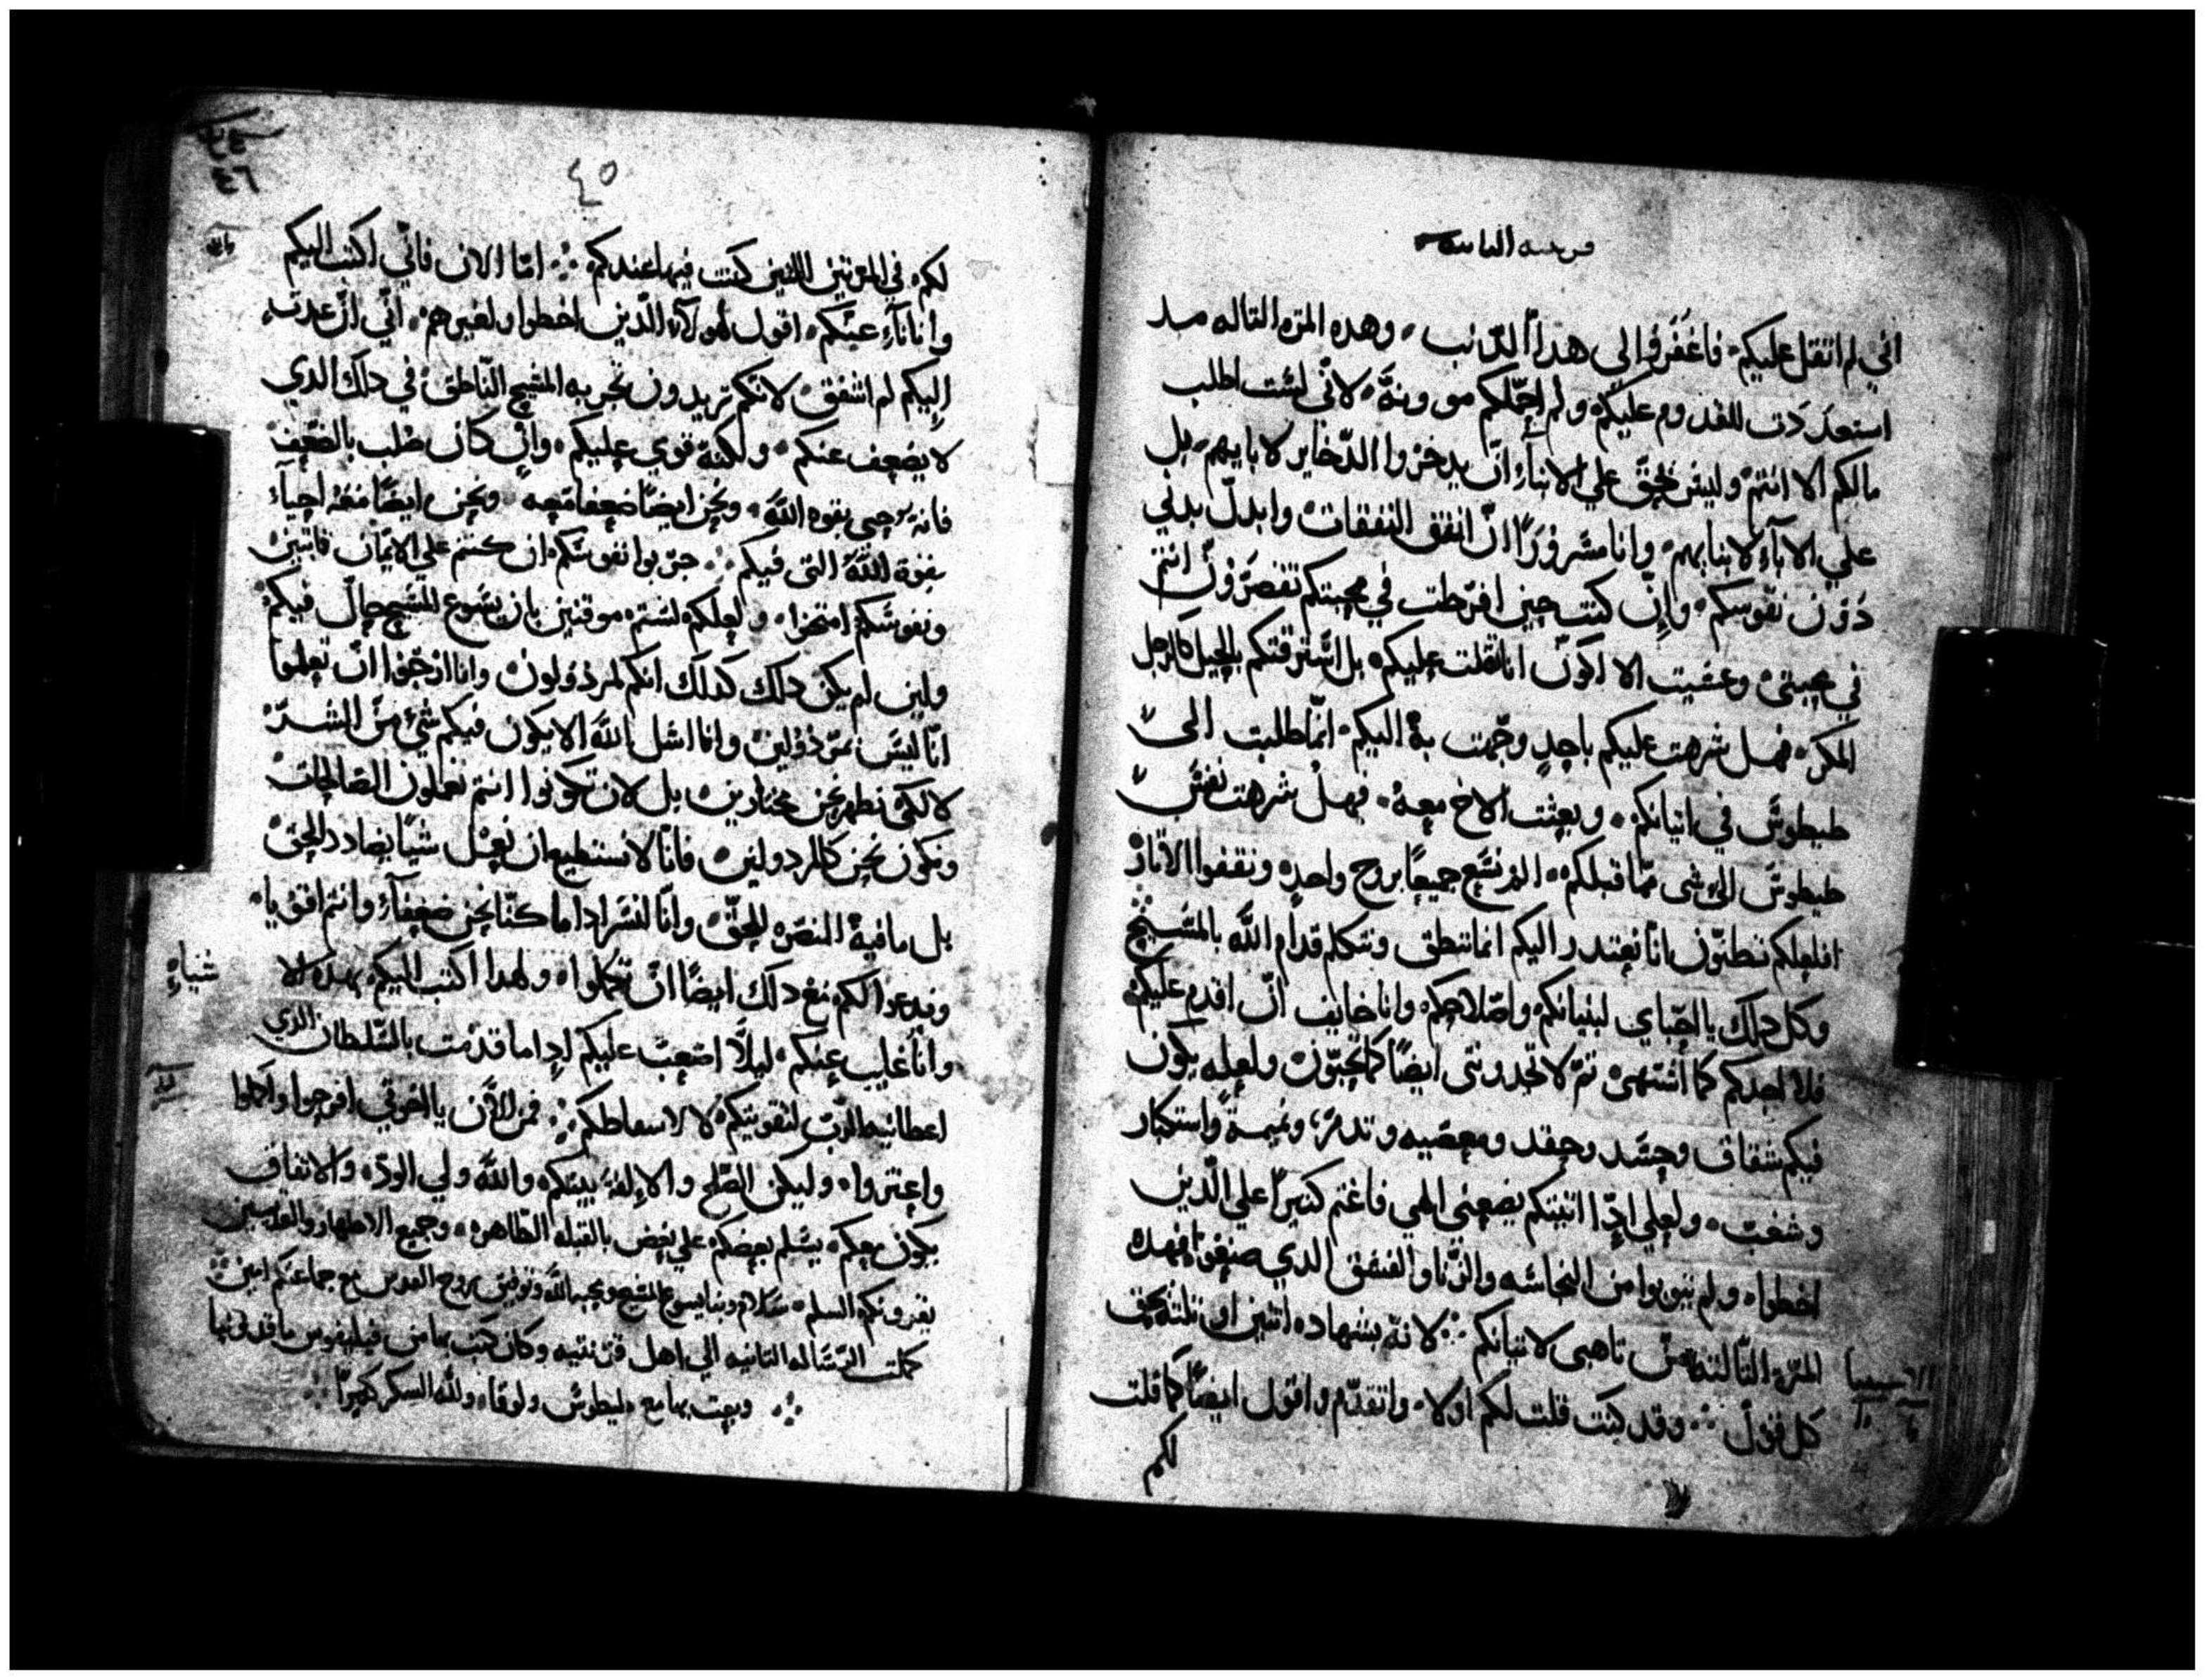 قرنتيه الثانيه
اني لم اثقل عليكم فاغفروا لي هدا الدنب وهده المره التالته مد
استعددت للقدوم عليكم ولم احملكم موونة لاني لست اطلب
مالكم الا انتم وليس يحق علي الابناء ان يدخروا الدخاير لابايهم بل
علي الاباء لابنايهم وانا مسرورًا ان انفق النفقات وابدل بدني
دون نفوسكم وان كنت حين افرطت في محبتكم تقصرون انتم
في محبتي وعسيت الا اكون انا ثقلت عليكم بل استرقتكم بالحيل كالرجل
المكر فهل شرهت عليكم باحدٍ وجهت به اليكم انما طلبت الى
طيطوس في اتيانكم وبعثت الاخ معه فهل شرهت نفس
طيطوس الى شى مما قبلكم الم نسع جميعًا بروح واحده ونقفوا الاثار
افلعلكم تظنون انا نعتدر اليكم انما ننطق ونتكلم قدام الله بالمسيح
وكل دلك يا احباي لبنيانكم واصلاحكم وانا خايف ان اقدم عليكم
فلا اجدكم كما اشتهى تم لا تجدونى ايضًا كما تحبون ولعله يكون
فيكم شقاق وحسد وحقد ومعصيه وتدمر ونميمة واستكبار
وشغب ولعلي ادا اتيتكم يضعني الهي فاغتم كثيرًا علي الدين
اخطوا ولم يتوبوا من النجاسه والزنا والفسق الدي صنعوا فهده
المره الثالثه من تاهبى لاتيانكم لانه بشهاده اثنين او ثلثه يحق
كل قول وقد كنت قلت لكم اولا واتقدم واقول ايضًا كما قلت
لكم
٤٥
لكم في المرتين اللتين كنت فيها عندكم اما الان فاني اكتب اليكم
وانا ناءٍ عنكم اقول لهولاء الدين اخطوا ولغيرهم اني ان عدت
اليكم لم اشفق لانكم تريدون تجربه المسيح الناطق في دلك الدي
لا يضعف عنكم ولكنه قوي عليكم وان كان صلب بالضعف
فانه يرجى بقوه الله ونحن ايضًا ضعفا معه ونحن ايضًا معه احياء
بقوة الله التى فيكم جربوا نفوسكم ان كنتم علي الايمان ثابتين
ونفوسكم امتحنوا ولعلكم لستم موقنين بان يسوع المسيح حال فيكم
ولين لم يكن دلك كدلك انكم لمردولون وانا ارجوا ان تعلموا
انا ليس بمردولين وانا اسل الله الا يكون فيكم شي من الشر
لا لكى نظهر نحن مختارين بل لان تكونوا انتم تعملون الصالحات
ونكون نحن كالمردولين فانا لا نستطيع ان نعمل شيًا يضادد الحق
بل ما فيه النصره للحق وانا لنسر ادا ما كنا نحن ضعفاء وانتم اقويا
وندعوا لكم مع دلك ايضًا ان تكملوا ولهدا اكتب اليكم بهده الا شياء
وانا غايب عنكم ليلا اصعب عليكم ادا ما قدمت بالسلطان الدي
اعطانيه الرب لتقويتكم لا لاسقاطكم فمن الان يا اخوتي افرحوا واكملوا
واعتزوا وليكن الصلح والالفه بينكم والله ولي الود والاتفاق
يكون معكم يسلم بعضكم علي بعض بالقبله الطاهره وجميع الاطهار والقديسين
يقرونكم السلم سلام ربنا يسوع المسيح ومحبه الله وتوفيق روح القدس مع جماعتكم امين
كملت الرساله التانيه الي اهل قرنتيه وكان كتب بها من فيليفوس ماقدونيا
وبعت بها مع طيطوس ولوقا ولله الشكر كثيرًا